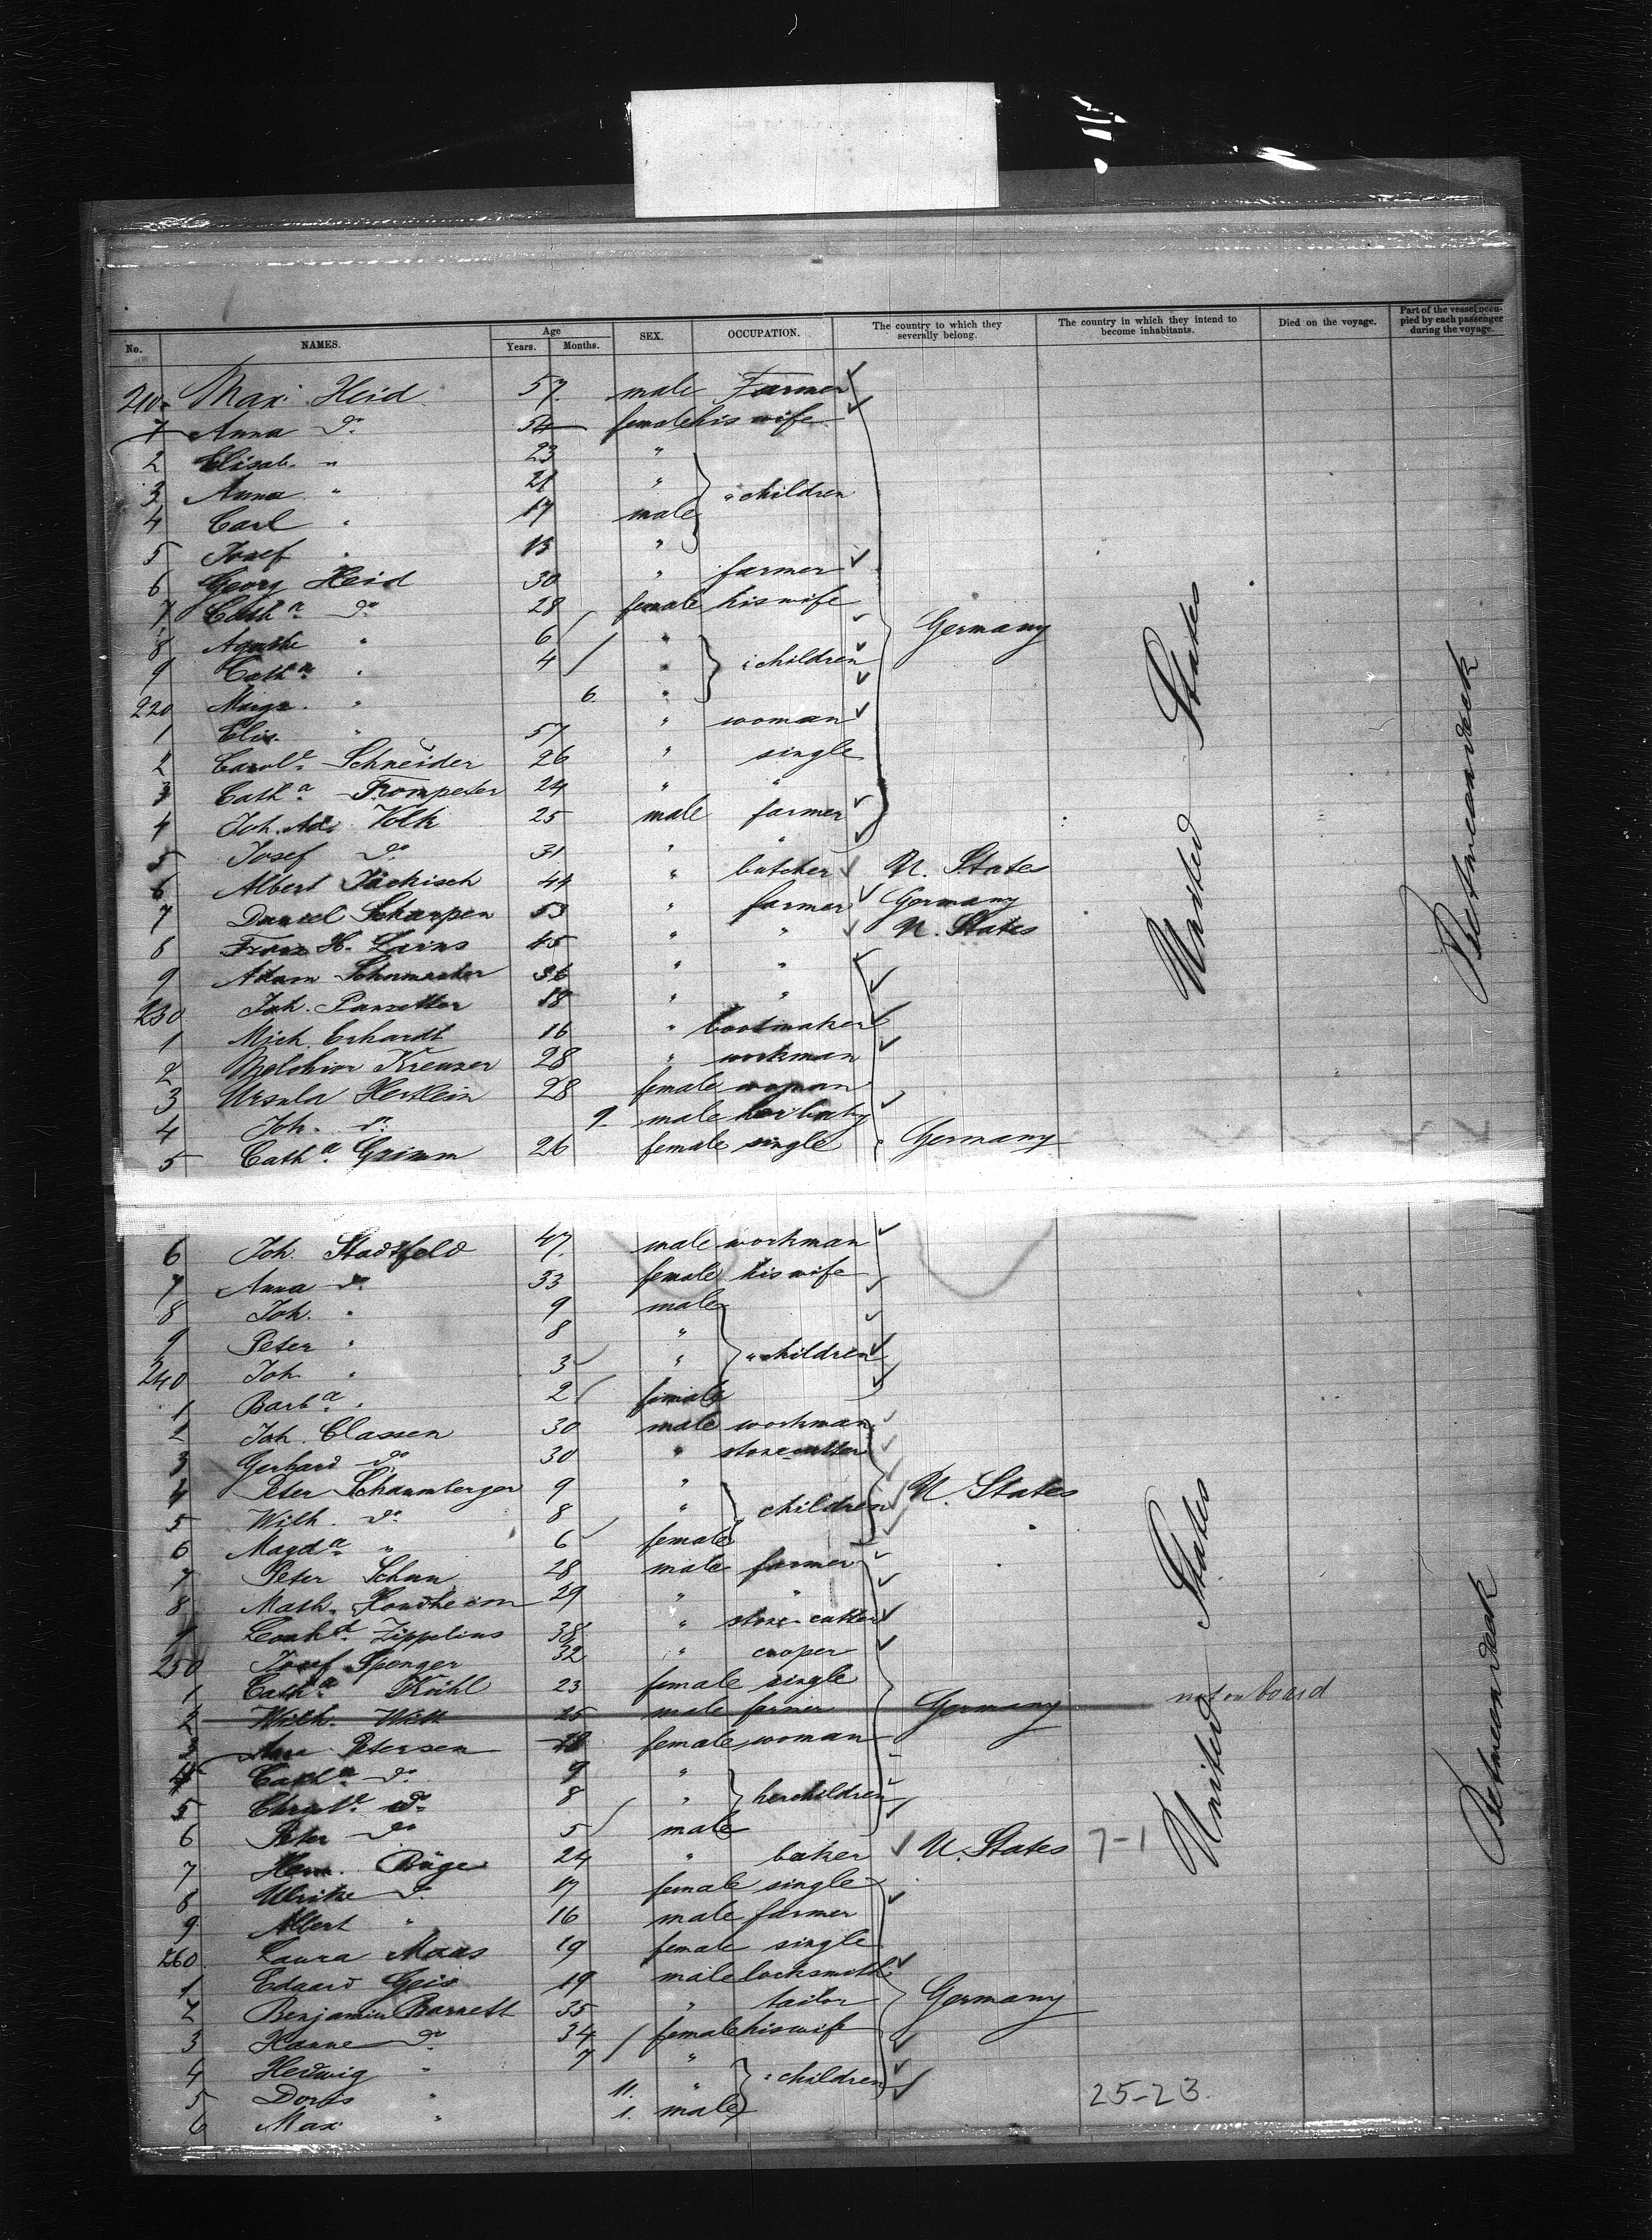 No. NAMES. Age Years. Months. SEX. OCCUPATION. The country to which they severally belong. The country in which they intend to become inhabitants. Died on the voyage. Part of the vessel occupied by each passenger during the voyage.
210 Max Heid 57 male Farmer
1 Anna do 54 female his wife
2 Elisab. " 23 "
3 Anna " 21 " " children
4 Carl " 17 male
5 Josef " 13 "
6 Georg Heid 30 " farmer
7 Cath.a do 28 female his wife
8 Agathe " 6 " Germany
9 Cath.a " 4 " children
220 Margr. " 6 "
1 Elis. " 57 " woman
2 Carol. Schneider 26 " single
3 Cath.a Trompeter 24 " "
4 Joh. Ad. Volk 25 male farmer
5 Josef do 31 " "
6 Albert Jäckisch 44 " butcher U. States
7 Daniel Scharpen 53 " farmer Germany
8 Franz H. 45 " " U. States
9 Adam Schumacher 36 " "
230 Joh. 18 " "
1 Mich. Erhardt 16 " bootmaker
2 Melchior Kreuzer 28 " workman
3 Ursula Hertlein 28 female woman
4 Joh. do 9 male her baby
5 Cath.a Grimm 26 female single Germany
United States
Betweendeck
6 Joh. Stadtfeld 47 male workman
7 Anna do 33 female his wife
8 Joh. " 9 male
9 Peter " 8 "
240 Joh. " 3 " " children
1 Barb.a " 2 female
2 Joh. Classen 30 male workman
3 Gerhard do 30 " stonecutter
4 Peter Schaumberger 9 " U. States
5 Wilh. do 8 " children
6 Magd.a " 6 female
7 Peter Schun 28 male farmer
8 Math. Hontheim 29 " "
9 Leonh.d Zippelius 38 " stone-cutter
250 Josef Spenger 32 " cooper
1 Cath.a Köhl 23 female single
2 Wilh. Witt 25 male farmer Germany not on board
3 Petersen 28 female woman
4 Cath.a do 9 "
5 Christ. do 8 " her children
6 Peter do 5 male
7 Herm. Büge 24 " baker U. States 7-1
8 Ulrike do 17 female single
9 Albert " 16 male farmer
260 Laura Maas 19 female single
1 Eduard Geis 19 male locksmith
2 Benjamin Barnett 35 " tailor Germany
3 Hanne do 34 female his wife
4 Hedwig " 7 "
5 Doris " 11. " " children 25-23.
6 Max " 1. male
United States
Betweendeck